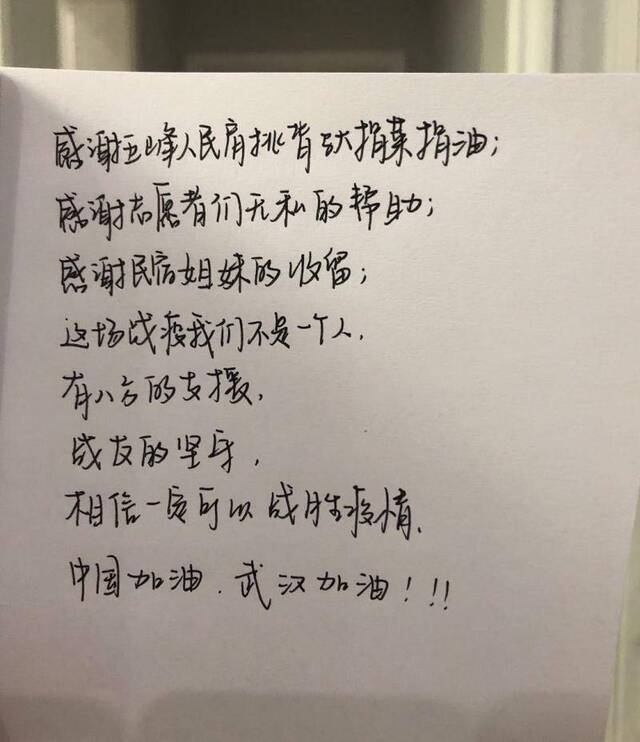 感谢五峰人民肩挑背驮捐菜捐油；
感谢志愿者们无私的帮助；
感谢民宿姐妹的收留；
这场战疫我们不是一个人，
有八方的支援，
战友的坚守，
相信一定可以战胜疫情，
中国加油．武汉加油！！！